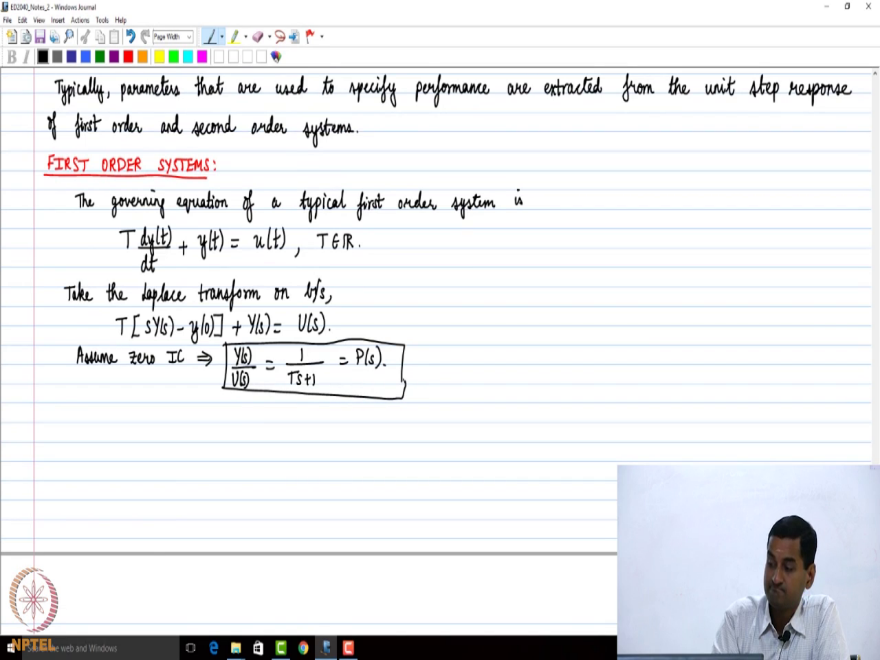 ED2040_Notes_2 - Windows Journal
File Edit View Insert Actions Tools Help
Page Width
B I
Typically, parameters that are used to specify performance are extracted from the unit step response
of first order and second order systems.
FIRST ORDER SYSTEMS:
The governing equation of a typical first order system is
T dy(t)/dt + y(t) = u(t), T ∈ ℝ.
Take the Laplace transform on b/s,
T[sY(s) - y(0)] + Y(s) = U(s).
Assume zero IC ⇒ Y(s)/U(s) = 1/(Ts+1) = P(s).
NPTEL
web and Windows